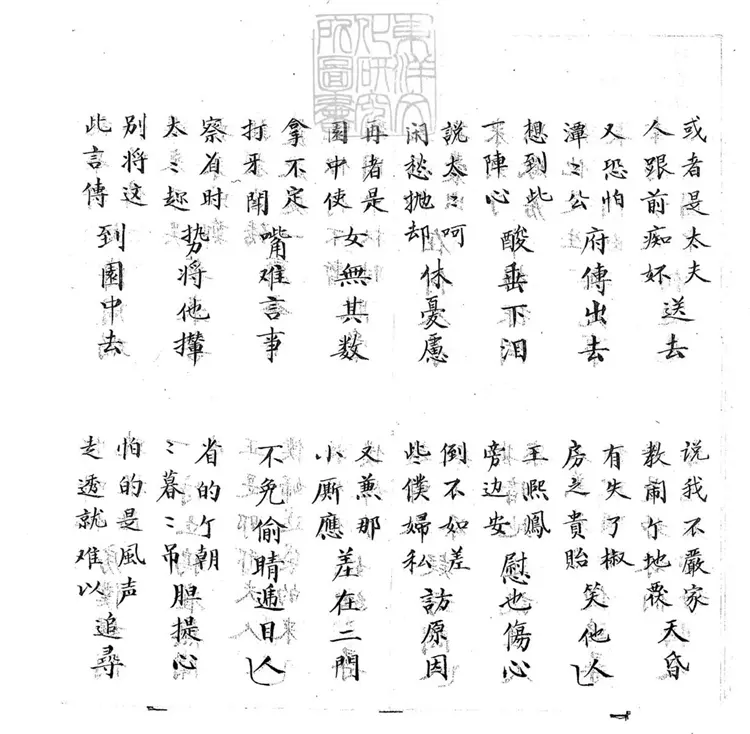 東洋文化研究所圖書
或者是太夫人跟前痴妚送去
说我不嚴家教闹个地覆天昏
又恐怕潭〻公府傳出去
有失了椒房之貴貽笑他人
想到此下陣心酸垂下泪
王熙鳳旁边安慰也傷心
說太〻呵闲愁抛却休憂慮
倒不如差些僕婦私訪原因
再者是園中使女無其数
又兼那小厮應差在二門
拿不定打牙閗嘴难言事
不免偷睛遞目人
察着时太〻趂势将他攆
省的个朝〻暮〻吊胆提心
别将这此言傳到園中去
怕的是風声走透就难以追尋